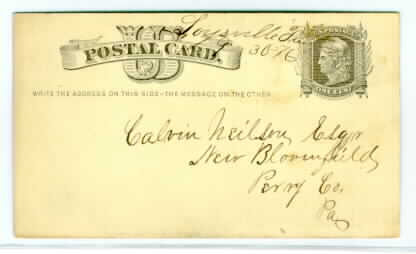 Loysville Pa
30-76
U S POSTAGE
POSTAL CARD.
ONE CENT
WRITE THE ADDRESS ON THIS SIDE–THE MESSAGE ON THE OTHER
Calvin Neilson Esqr
New Bloomfield
Perry Co.
Pa